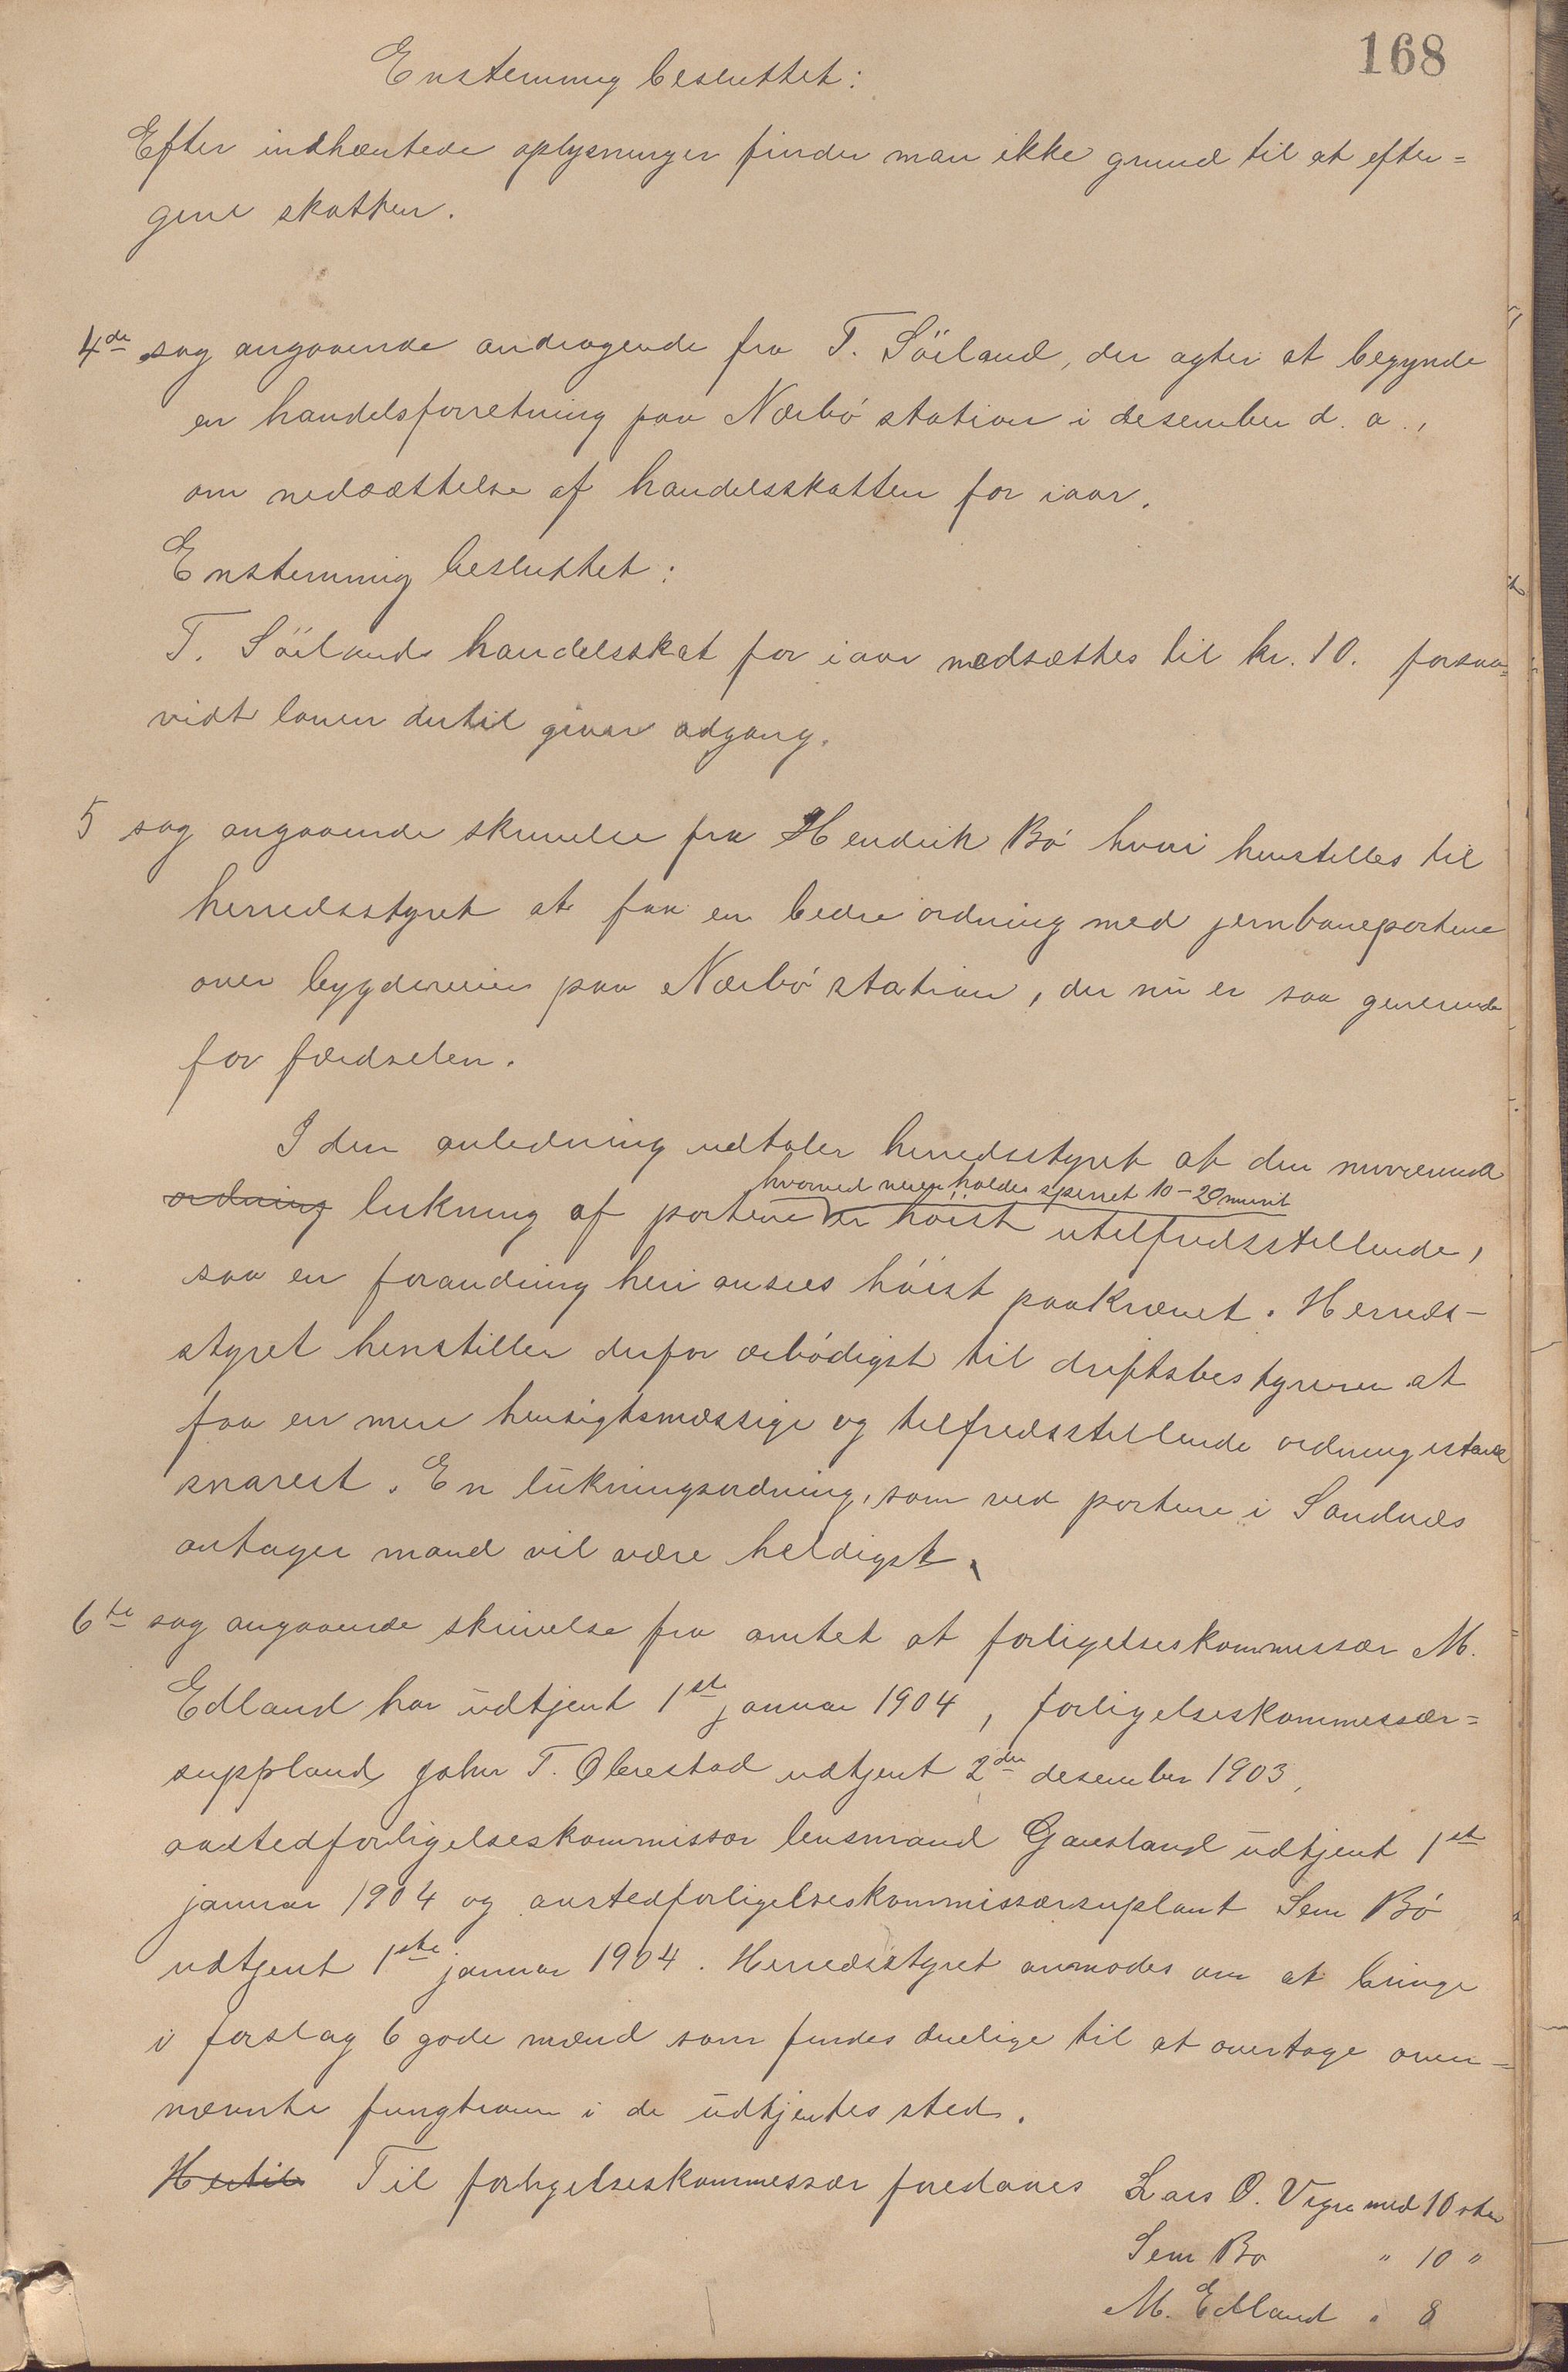 168
Enstemmig besluttet:
Efter indhæntede oplysninger finder man ikke grund til at efter=
give skatten.
4de sag angaaende andragende fra T. Söiland, der agter at begynde
en handelsforretning paa Nærbö station i desember d. a.,
om nedsættelse af handelsskatten for iaar.
Enstemmig besluttet:
T. Söilands handelsskat for iaar nedsættes til kr. 10. forsaa=
vidt loven dertil giver adgang.
5 sag angaaende skrivelse fra Hendrik Bö hvori henstilles til
herredsstyret at faa en bedre ordning med jernbaneportene
over bygdeveien paa Nærbö station, der nu er saa generende
for færdselen.
I den anledning udtaler herredsstyret at den nuværende
hvorved veien holdes sperret 10-20 minut
ordning lukning af portene er höist utilfredsstillende,
saa en forandring heri ansees höist paakrævet. Herreds-
styret henstiller derfor ærbödigst til driftsbestyreren at
faa en mere hensigtsmæssige og tilfredsstillende ordning istand
snarest. En lukningsordning, som ved portene i Sandnes
antager mand vil være heldigst.
6te sag angaaende skrivelse fra amtet at forligelseskommissær M.
Edland har udtjent 1st januar 1904, forligelseskommessær=
suppland John T. Obrestad udtjent 2den desember 1903,
aastedforligelseskommissær lensmand Gausland udtjent 1st
januar 1904 og aastedforligelseskommissærsuplant Sem Bö
udtjent 1ste januar 1904. Herredsstyret anmodes om at bringe
i forslag 6 gode mænd som findes duelige til at overtage oven=
nævnte fungtioner i de udtjentes sted.
Hertil Til forligelseskommessær foreslaaes Lars O. Vigre med 10 stem
Sem Bö " 10 "
M. Edland " 8